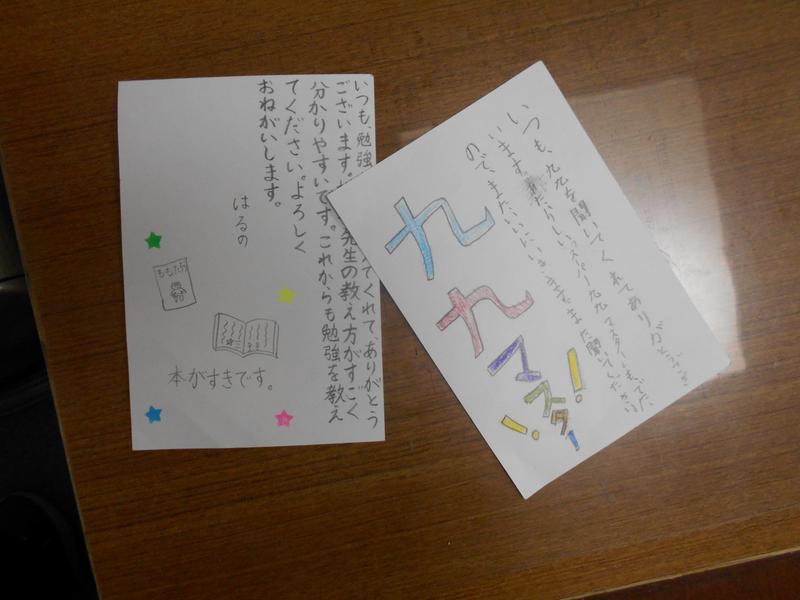 いつも、勉強 てくれて、ありがとう
ございます。 先生の教え方がすごく
分かりやすいです。これからも勉強を教え
てください。よろしく
おねがいします。
はるの
ももたろう
本がすきです。
いつも、九九を聞いてくれてありがとうござ
います。あたらしいスーパー九九マスターもでた
ので、またいいにいきます。また聞いてください
九九マスター!!